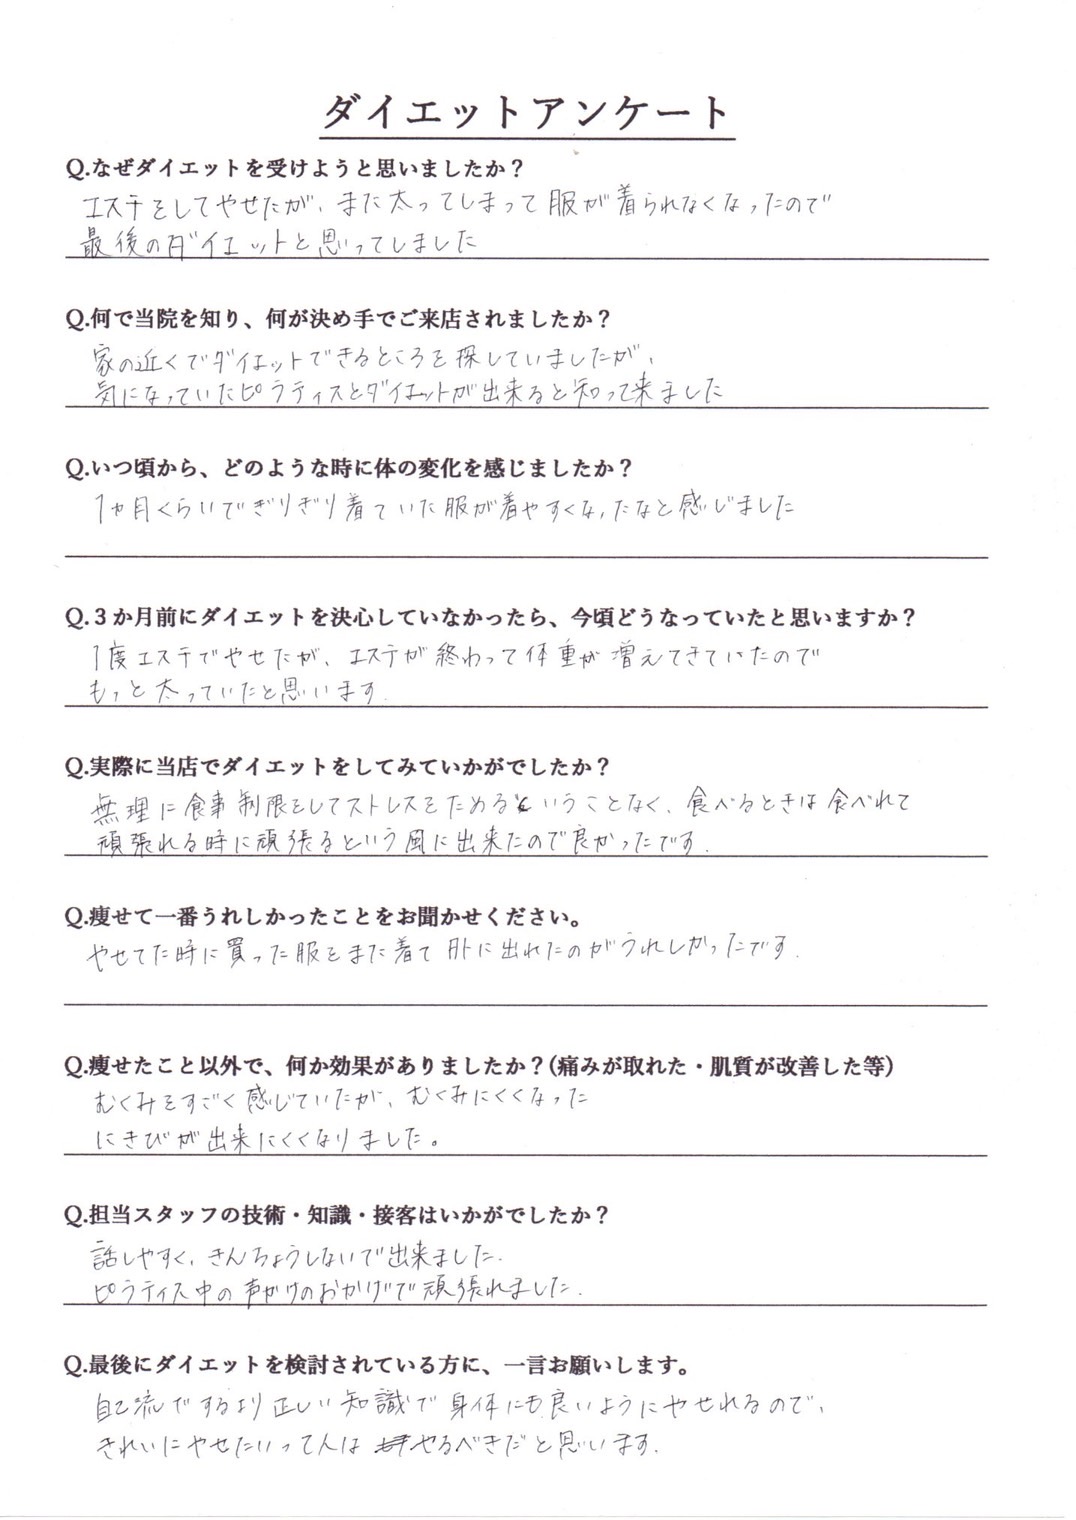 ダイエットアンケート
Q.なぜダイエットを受けようと思いましたか？
エステをしてやせたが、また太ってしまって服が着られなくなったので
最後のダイエットと思ってしました
Q.何で当院を知り、何が決め手でご来店されましたか？
家の近くでダイエットできるところを探していましたが、
気になっていたピラティスとダイエットが出来ると知って来ました
Q.いつ頃から、どのような時に体の変化を感じましたか？
1ヵ月くらいでぎりぎり着ていた服が着やすくなったなと感じました
Q.３か月前にダイエットを決心していなかったら、今頃どうなっていたと思いますか？
1度エステでやせたが、エステが終わって体重が増えてきていたので
もっと太っていたと思います.
Q.実際に当店でダイエットをしてみていかがでしたか？
無理に食事制限をしてストレスをためるということなく、食べるときは食べれて
頑張れる時に頑張るという風に出来たので良かったです.
Q.痩せて一番うれしかったことをお聞かせください。
やせてた時に買った服をまた着て外に出れたのがうれしかったです.
Q.痩せたこと以外で、何か効果がありましたか？(痛みが取れた・肌質が改善した等)
むくみをすごく感じていたが、むくみにくくなった
にきびが出来にくくなりました。
Q.担当スタッフの技術・知識・接客はいかがでしたか？
話しやすく、きんちょうしないで出来ました.
ピラティス中の声がけのおかげで頑張れました.
Q.最後にダイエットを検討されている方に、一言お願いします。
自己流でするより正しい知識で身体にも良いようにやせれるので、
きれいにやせたいって人はやるべきだと思います.